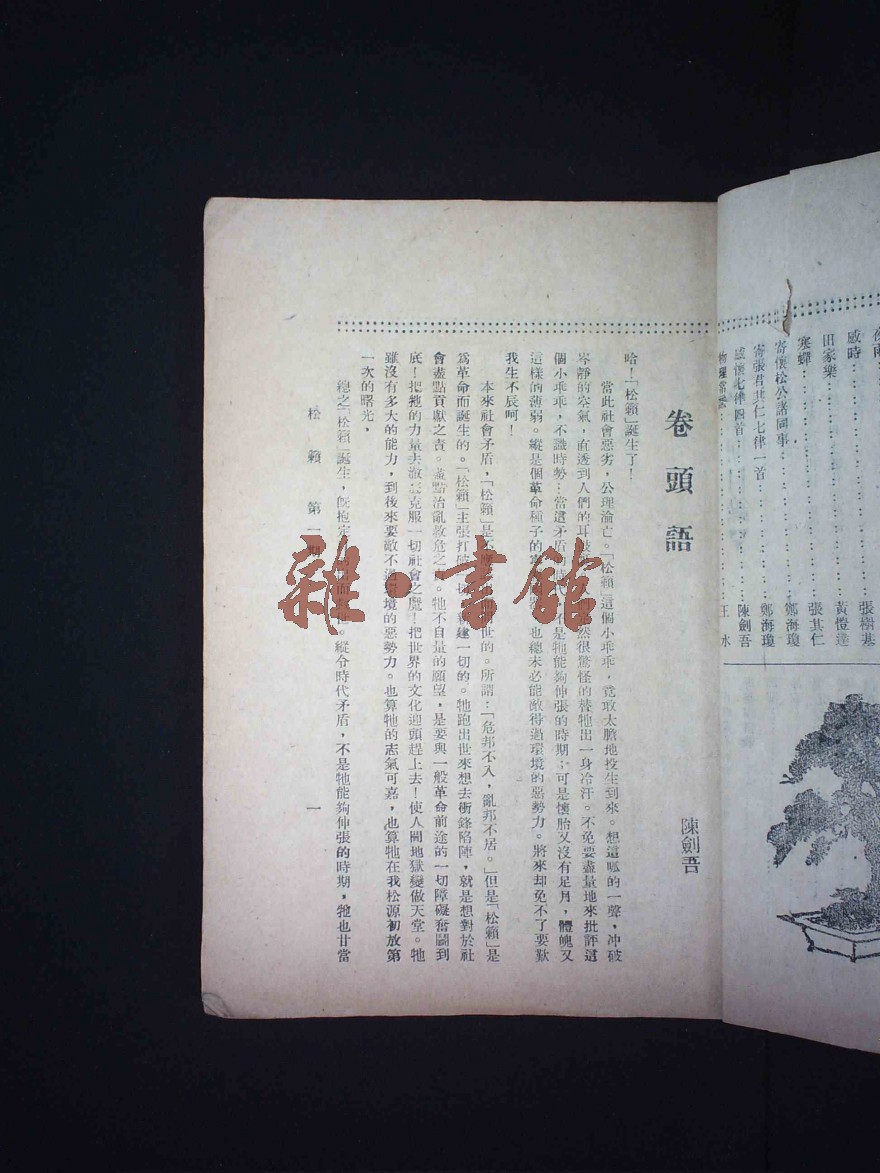 感時
田家樂
張樹基
黃愷達
寒蟬
張其仁
寄懷松公諸同事
鄭海瓊
寄張君其仁七律一首
鄭海瓊
感懷七律四首
陳劍吾
王冰
卷頭語
陳劍吾
哈！「松籟」誕生了！
當此社會惡劣，公理淪亡。「松籟」這個小乖乖，竟敢太膽地投生到來。想這呱的一聲，冲破
岑靜的空氣，直透到人們的耳然很驚怪的替牠出一身冷汗。不免要盡量地來批評這
個小乖乖，不識時勢…當這矛盾不是牠能夠伸張的時期；可是懷胎又沒有足月，體魄又
這樣的薄弱。縱是個革命種子的也總未必能敵得過環境的惡勢力。將來却免不了要歎
我生不辰呵！
本來社會矛盾，「松籟」是不應世的。所謂：「危邦不入，亂邦不居。」但是「松籟」是
爲革命而誕生的。「松籟」主張打破建一切的。牠跑出世來想去衝鋒陷陣，就是想對於社
會盡點貢獻之責。盡點治亂救危之。牠不自量的願望，是要與一般革命前途的一切障礙奮鬪到
底！把牠的力量去克服一切社會之魔！把世界的文化迎頭趕上去！使人間地獄變做天堂。牠
雖沒有多大的能力，到後來要敵不過環境的惡勢力。也算牠的志氣可嘉，也算牠在我松源初放第
一次的曙光，
總之「松籟」誕生，既抱定而。縱令時代矛盾，不是牠能夠伸張的時期，牠也甘當
松籟 第一期
一
雜·書館